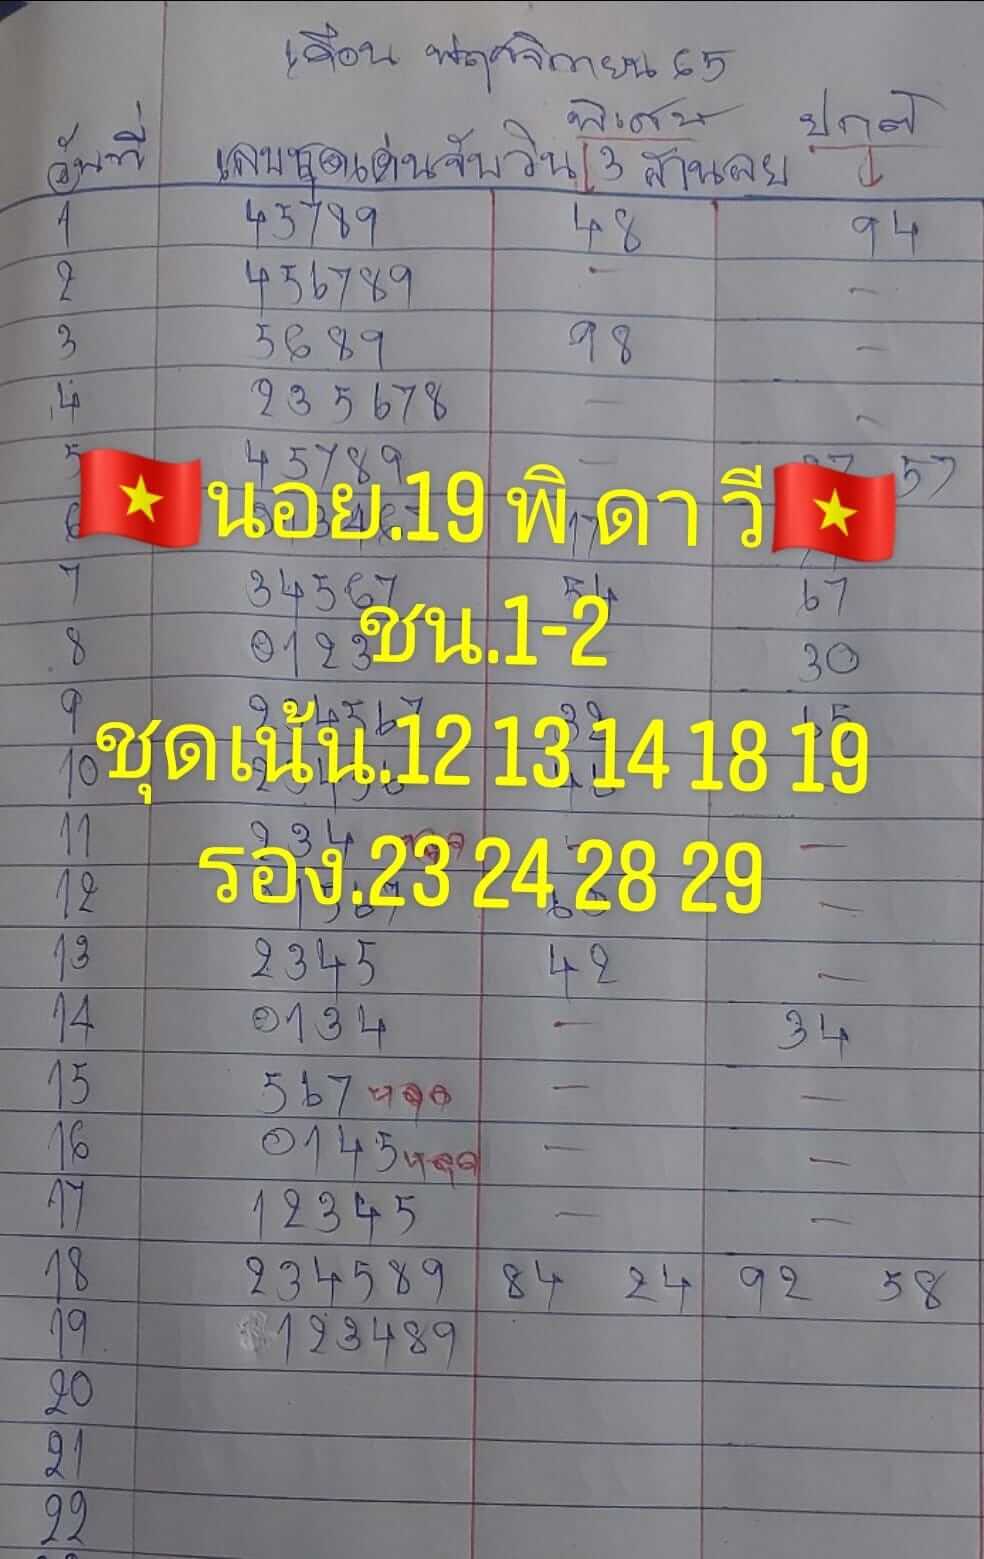 เดือน พฤศจิกายน 65
พิเศษ ปกติ
วันที่ เลขชุดเด่นจับวิน 3 ฮานอย
1 45789 48 94
2 456789 - -
3 5689 98 -
4 235678 - -
5 45789 - 57
🇻🇳นอย.19 พิ ดา วี🇻🇳
6 17
7 34567 54 67
ชน.1-2
8 0123 30
9 234567 32 65
ชุดเน้น.12 13 14 18 19
10 23456 46
11 234 หลุด - -
รอง.23 24 28 29
12 01567 60 -
13 2345 42 -
14 0134 - 34
15 567 หลุด - -
16 0145 หลุด - -
17 12345 - -
18 234589 84 24 92 58
19 123489
20
21
22